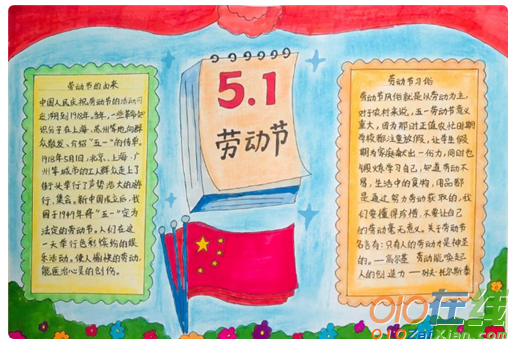 劳动节的由来
中国人民庆祝劳动节的活动可
追溯到1918年。当年,一些革命知
识分子在上海、苏州等地向群
众散发、介绍“五一”的传单。
1918年5月1日,北京、上海、广
州等城市的工人群众走上了
街头举行了声势浩大的游
行,集会。新中国成立后,我
国于1949年将“五一”定为
法定的劳动节。人们在这
一天举行色彩缤纷的娱
乐活动。使人愉快的劳动,
能医治心灵的创伤。
5.1
劳动节
劳动节习俗
劳动节风俗就是以劳动为主,
对于农村来说,五一劳动节意义
重大,因为那时正值农忙时期
学校都注重放假,让学生假
期为家庭献出一份力,同时也
锻炼学习自己,知道劳动不
易,生活中的食物,用品都
是通过努力劳动获取的,我
们要懂得珍惜,不要让自己
们的劳动毫无意义。关于劳动节
名言有:只有人的劳动是神圣
的。—高尔基 劳动能唤起
人的创造力 —列夫·托尔斯泰
010在线
010ZaiXian.com